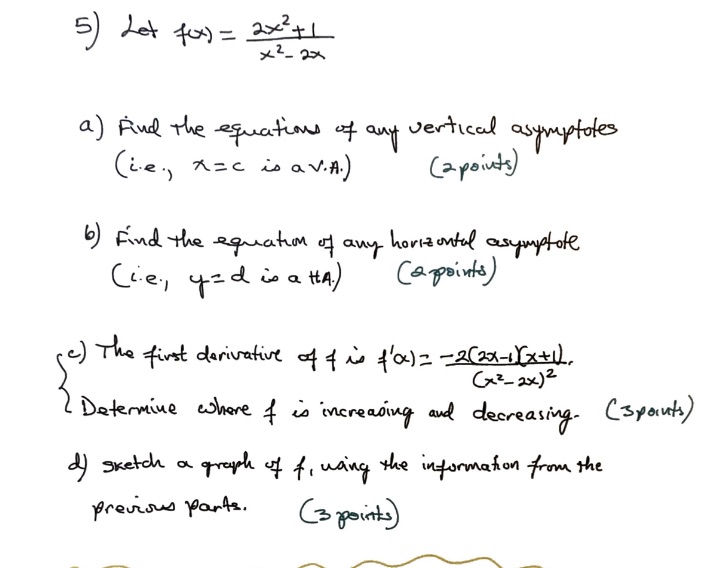 5) Let f(x) = 2x²+1 / x²-2x
a) Find the equations of any vertical asymptotes
(i.e., x=c is a V.A.) (2 points)
b) Find the equation of any horizontal asymptote
(i.e., y=d is a HA.) (2 points)
c) The first derivative of f is f'(x) = -2(2x-1)(x+1) / (x²-2x)².
Determine where f is increasing and decreasing. (3 points)
d) sketch a graph of f, using the information from the
previous parts. (3 points)